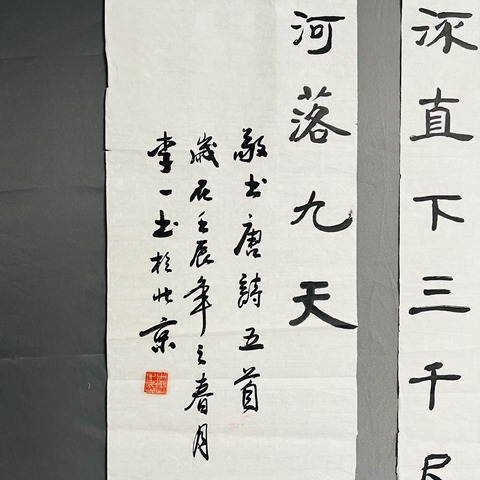 泺直下三千尺
河落九天
敬书唐詩五首
歲在壬辰年之春月
李一书於北京